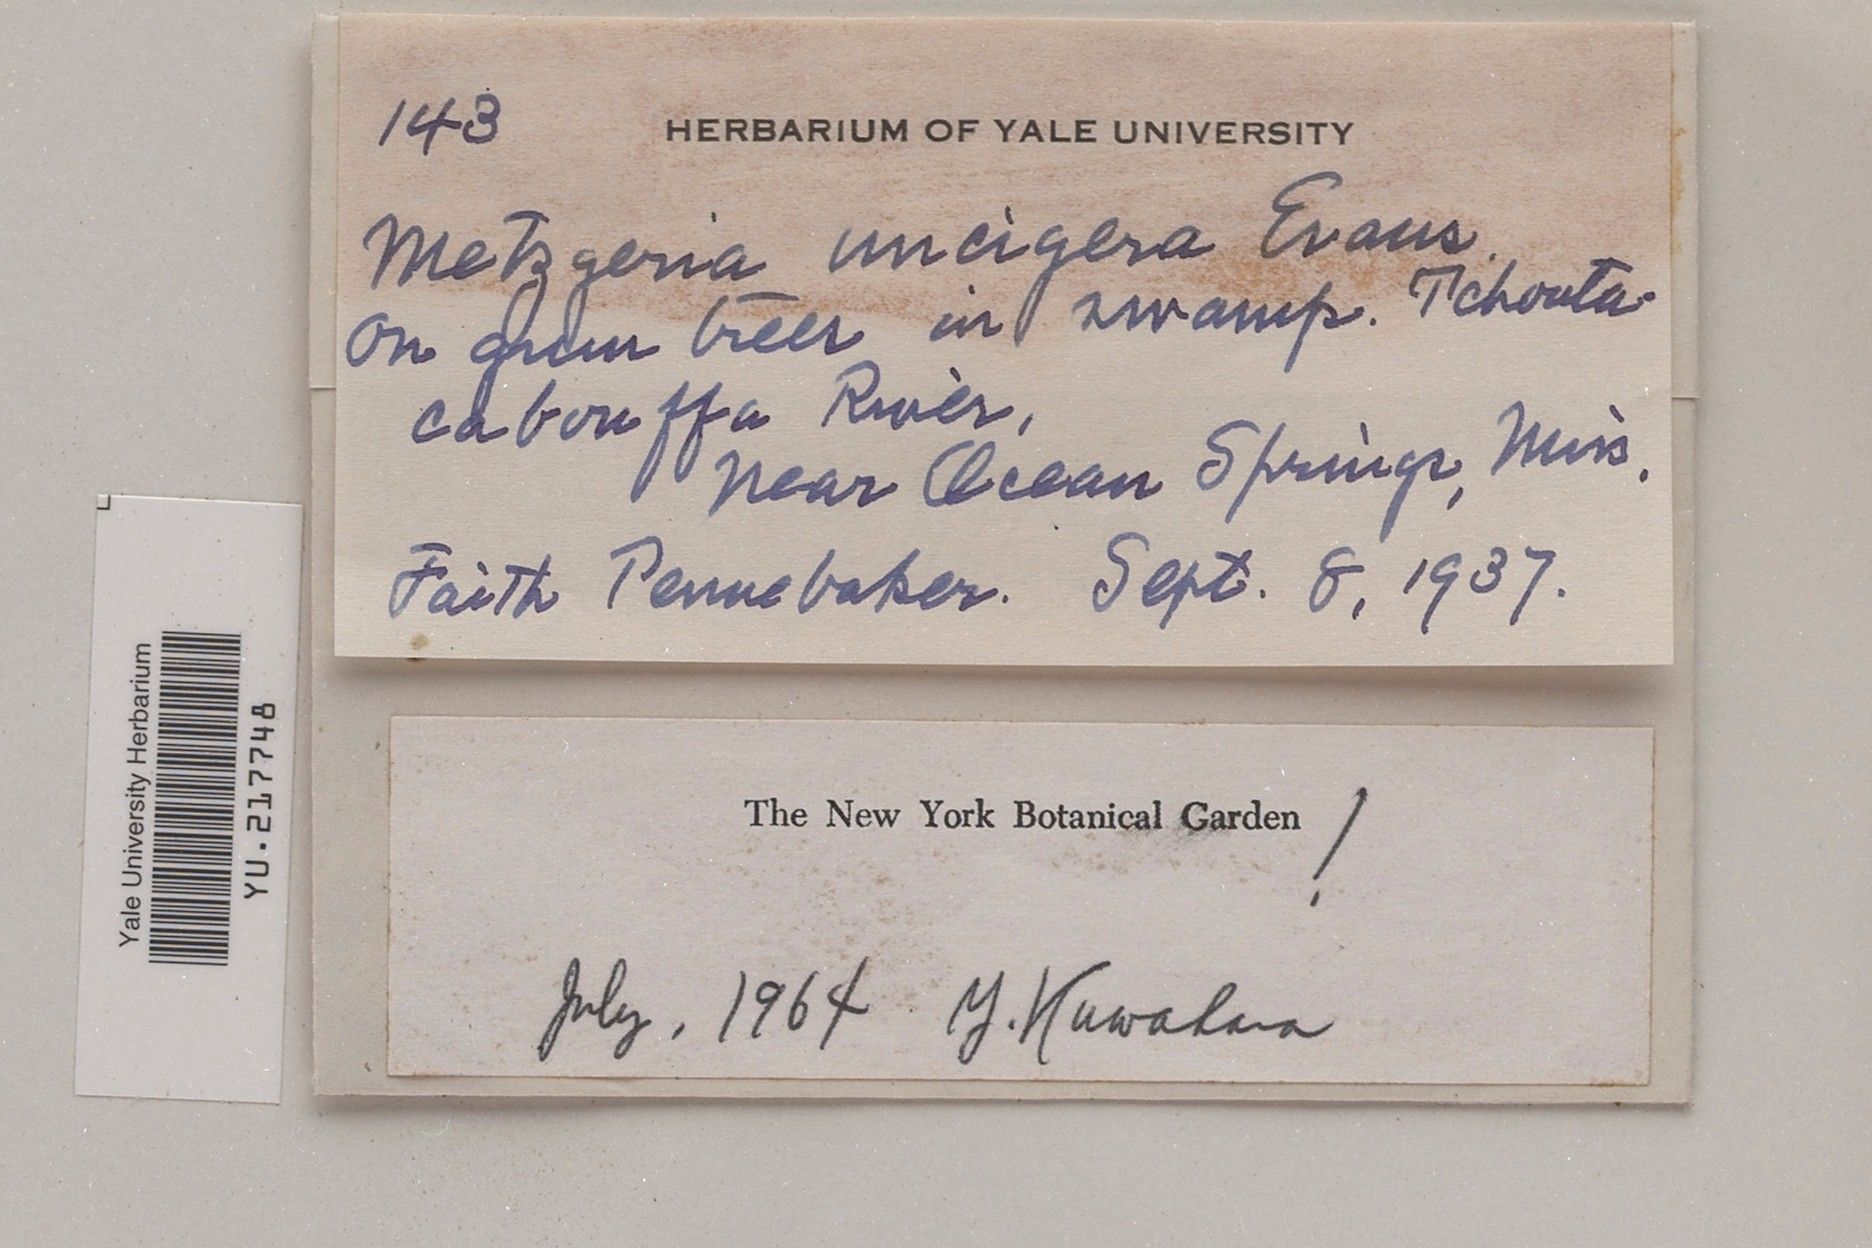 143
HERBARIUM OF YALE UNIVERSITY
Metzgeria uncigera Evans.
On gum trees in swamp. Tchouta-
cabouffa River,
Near Ocean Springs, Miss.
Faith Pennebaker. Sept. 8, 1937.
Yale University Herbarium
YU.217748
The New York Botanical Garden !
July, 1964 Y. Kuwahara